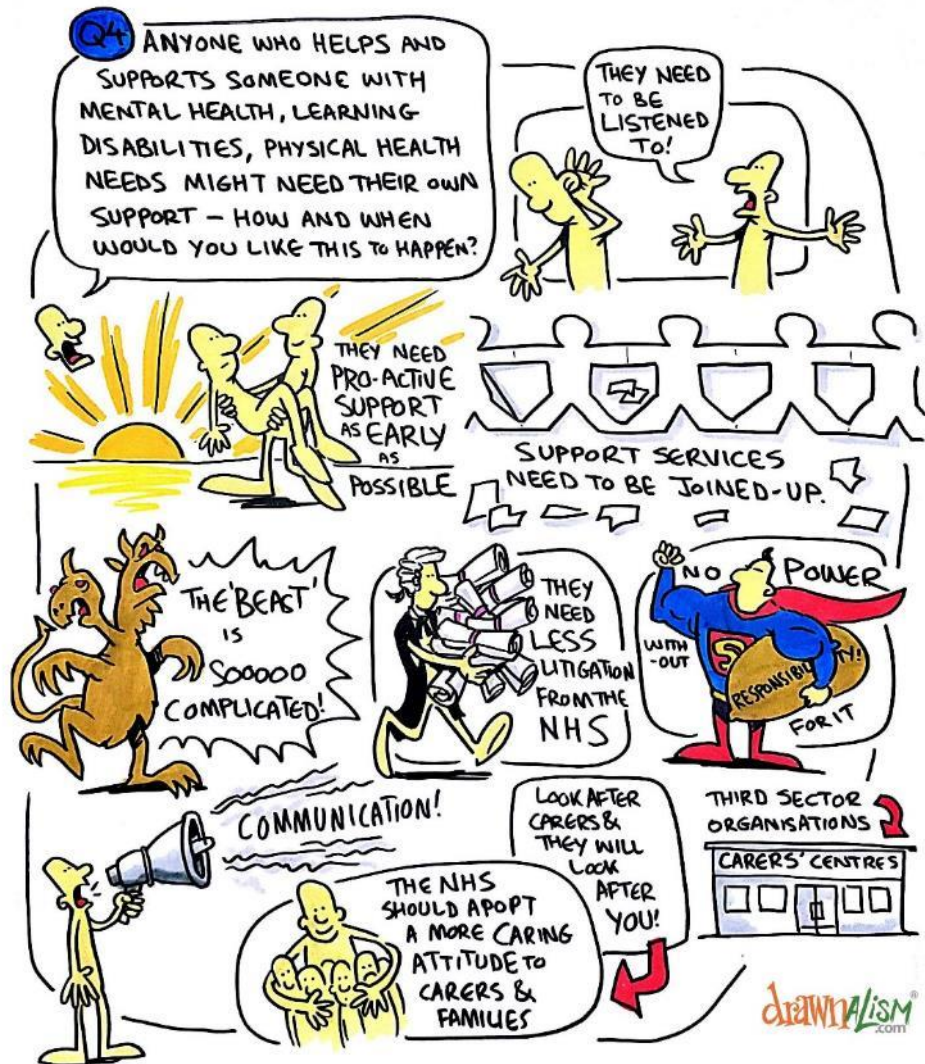 Q4 ANYONE WHO HELPS AND
SUPPORTS SOMEONE WITH
MENTAL HEALTH, LEARNING
DISABILITIES, PHYSICAL HEALTH
NEEDS MIGHT NEED THEIR OWN
SUPPORT – HOW AND WHEN
WOULD YOU LIKE THIS TO HAPPEN?
THEY NEED
TO BE
LISTENED
TO!
THEY NEED
PRO-ACTIVE
SUPPORT
AS EARLY
AS
POSSIBLE
SUPPORT SERVICES
NEED TO BE JOINED-UP.
THE 'BEAST'
IS
SOOOOO
COMPLICATED!
THEY
NEED
LESS
LITIGATION
FROM THE
NHS
NO POWER
WITH
-OUT
RESPONSIBILITY!
FOR IT
S
COMMUNICATION!
LOOK AFTER
CARERS &
THEY WILL
LOOK
AFTER
YOU!
THIRD SECTOR
ORGANISATIONS
CARERS' CENTRES
THE NHS
SHOULD APOPT
A MORE CARING
ATTITUDE TO
CARERS &
FAMILIES
drawnALISM®
.com